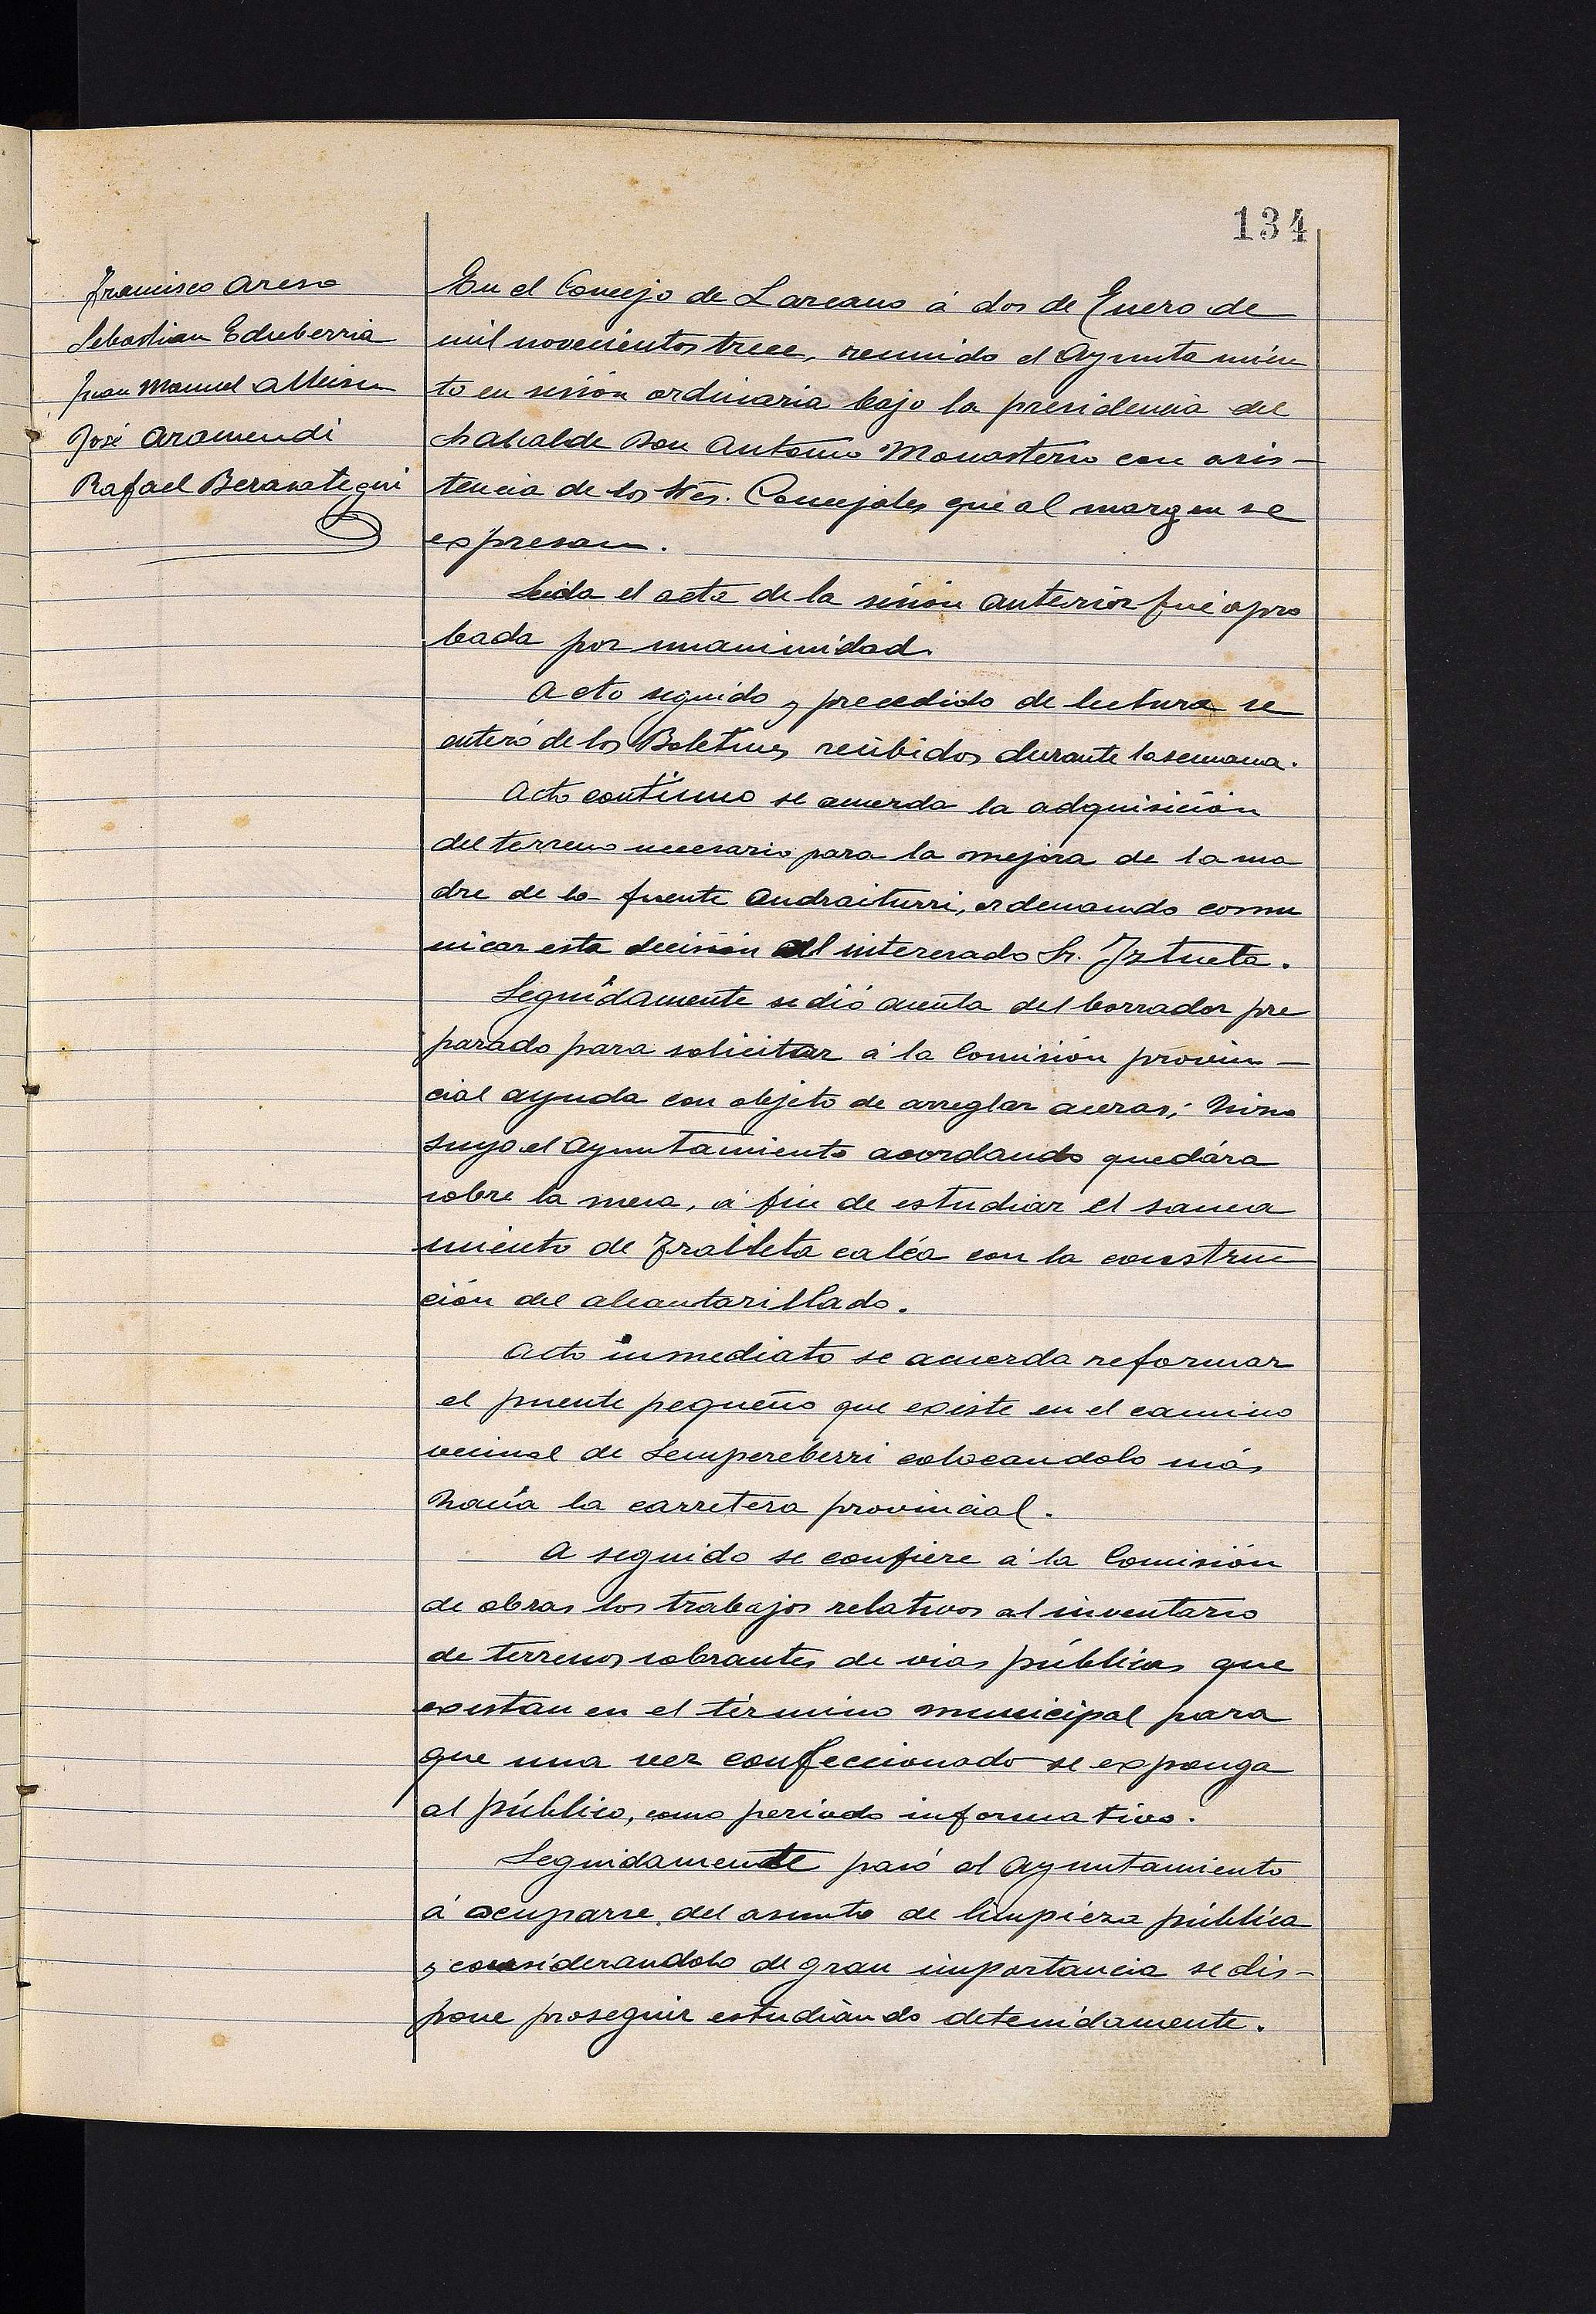 134
Francisco Areso
Sebastian Echeberria
Juan Manuel Albisu
José Aramendi
Rafael Berasategui
En el Concejo de Lazcano á dos de Enero de
mil novecientos trece, reunido el Ayuntamien
to en sesión ordinaria bajo la presidencia del
Sr Alcalde Don Antonio Monasterio con asis-
tencia de los Sres. Concejales que al margen se
expresan.
Leida el acta de la sesión anterior fué apro
bada por unanimidad.
Acto seguido y precedido de lectura se
enteró de los Boletines recibidos durante la semana.
Acto contínuo se acuerda la adquisición
del terreno necesario para la mejora de la ma
dre de la fuente Andraiturri, ordenando comu
nicar esta decisión al interesado Sr. Iztueta.
Seguidamente se dió cuenta del borrador pre
parado para solicitar á la Comisión provin-
cial ayuda con objeto de arreglar aceras; hizo
suyo el Ayuntamiento acordando quedára
sobre la mesa, á fin de estudiar el sanea
miento de Zralleta caléa con la construc
ción del alcantarillado.
Acto inmediato se acuerda reformar
el puente pequeño que existe en el camino
vecinal de Sempereberri colocandolo más
hacia la carretera provincial.
A seguido se confiere á la Comisión
de obras los trabajos relativos al inventario
de terrenos sobrantes de vias públicas que
existan en el término municipal para
que una vez confeccionado se exponga
al público, como periodo informativo.
Seguidamente pasó el Ayuntamiento
á ocuparse del asunto de limpieza pública
y considerandolo de gran importancia se dis-
pone proseguir estudiándo detenidamente.